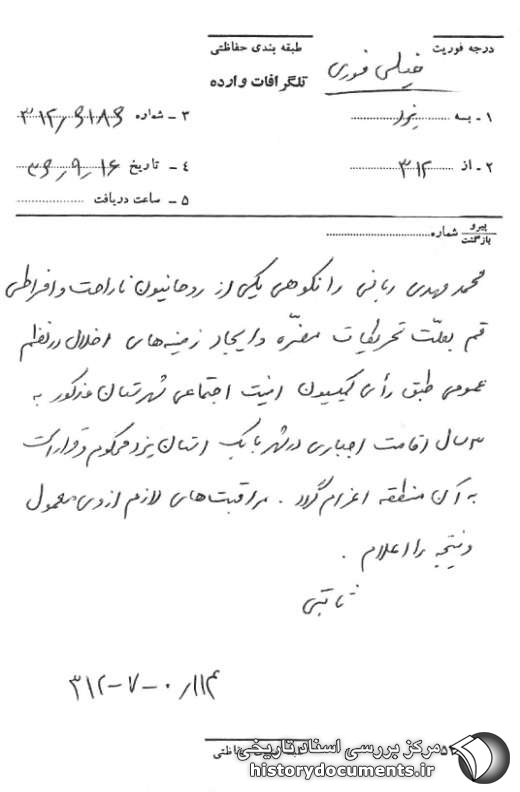 درجه فوریت
خیلی فوری
طبقه بندی حفاظتی
تلگرافات وارده
۱ - به یزد
۲ - از ۳۱۲
۳ - شماره ۳۱۲/۶۱۸۶
۴ - تاریخ ۳۶/۹/۱۶
۵ - ساعت دریافت
پیرو
بازگشت
شماره
محمد مهدی ربانی رانکوهی یکی از روحانیون ناراحت و افراطی
قم بعلت تحریکات مضره و ایجاد زمینه‌های اخلال در نظم
عمومی طبق رأی کمیسیون امنیت اجتماعی شهرستان مذکور به
۳ سال اقامت اجباری در شهر بابک استان یزد محکوم و قرار است
به آن منطقه اعزام گردد . مراقبت‌های لازم از وی معمول
و نتیجه را اعلام .
ثابتی
۳۱۲-۷-۰/۱۱۴
طبقه حفاظتی
مرکز بررسی اسناد تاریخی
historydocuments.ir